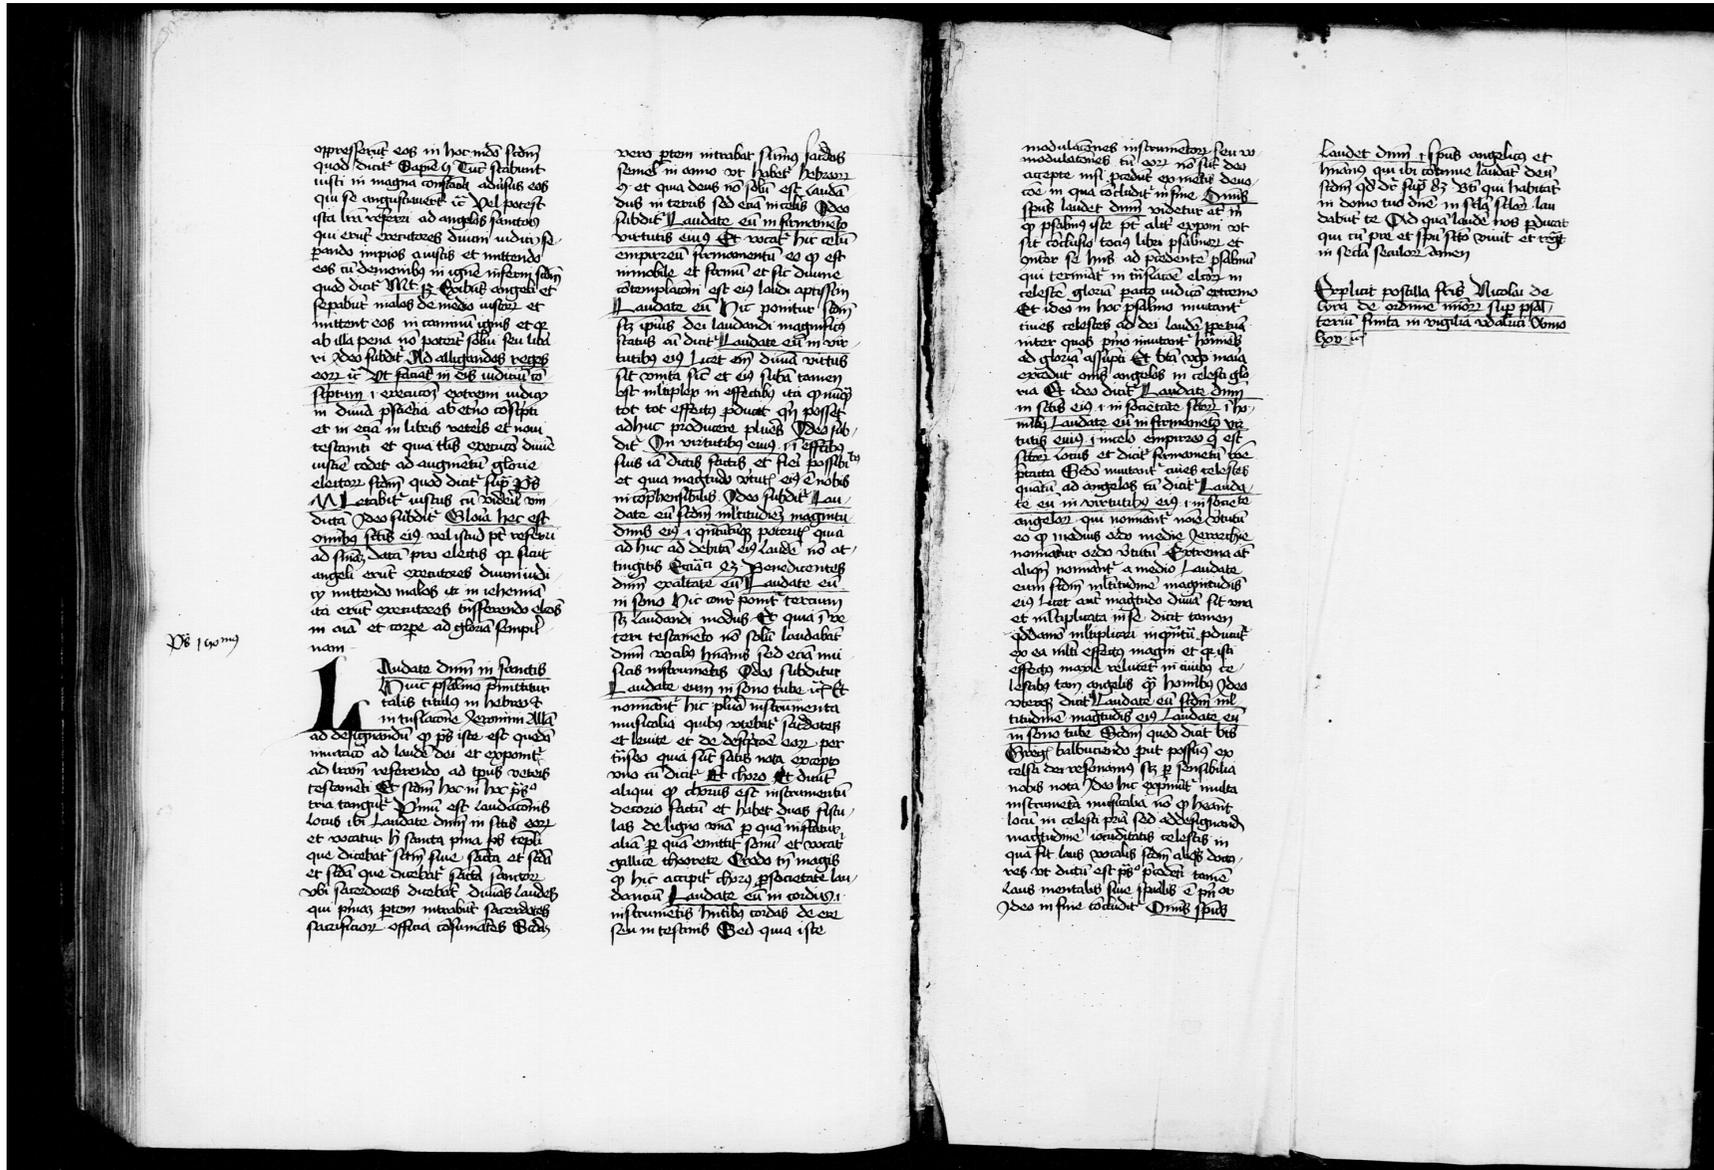 oppresserūt eos in hoc mūdo scdm̄
quod dicit̉ Sapiē 5 Tūc stabunt
iusti in magna constātia adūsus eos
qui se angustiauerūt ⁊c̄ Vel potest
ista lr̄a referri ad angelos sanctos
qui erūt executores diuini iudicij se-
parando impios a iustis et mittendo
eos cū demonibus in ignē inferni scdm̄
quod dicit̉ Mt 13 Exibūt angeli et
separabūt malos de medio iustorꝝ et
mittent eos in caminū ignis et qꝛ
ab illa pena nō poterūt solui seu libā
ri Ideo subdit̉ Ad alligandos reges
eorꝝ ⁊c̄ Vt faciāt in eis iudiciū cō
sc̄ptum .i. executōꝫ extremi iudicij
in diuīa p̄sciētia ab et̄no cōsc̄pti
et in etiā in libris veteris et noui
testamēti et quia tl̄is executō diuīe
iusticie cedet ad augmētū glorie
electorꝝ scdm̄ quod dicit̉ sup̄ Ps̄
Letabit̉ iustus cū viderit vin
dictā Ideo subdit̉ Gloria hec est
omībus sc̄tis eiꝰ vel istud pt̄ referri
ad sn̄iaꝫ datā pro electis qꝛ sicut
angeli erūt executores diuini iudi
cij mittendo malos in iehennā
ita erūt executores trāsferendo electos
in aīa et corpe ad gloriā sempit̉
nam
Ps̄ 150mus
Laudate dn̄m in sanctis
Huic psalmo p̄mittitur
talis titulus in hebreo ⁊
in trāslacōne Ieronimi Alla
ad designandū qꝫ ps̄ iste est quedā
inuitacō ad laudē dei et exponit̉
ad lr̄am referendo ad tp̄us veteris
testamēti Et scdm̄ hoc in hoc ps̄o
tria tangūt̉ Primū est laudacōnis
locus ibi Laudate dn̄m in sc̄tis eiꝰ
et vocatur h̄ sancta pīma ps templi
que dicebat̉ sctm̄ siue sc̄ta et scd̄a
et scd̄a que dicebat̉ sc̄ta sanctorꝝ
vbi sacerdotes dicebāt diuīas laudes
qui pīmaꝫ ptem intrabāt sacerdotes
sacrificiorꝝ officia cōsumātes Scd̄aꝫ
vero ptem intrabat sūmus sacdos
semel in anno vt habet̉ hebreorꝝ
9 et quia deus nō solū est laudā
dus in terris sed etiā in celis Ideo
subdit̉ Laudate eū in firmamēto
virtutis eiꝰ Et vocat̉ hic celū
empireū firmamentū eo qꝫ est
inmobile et firmū et sic diuine
cōtemplacōni est eiꝰ laudi aptissim
Laudate eū Hic ponitur scdm̄
scꝫ ipīus dei laudandi magnificꝰ
status cū dicit̉ Laudate eū in vir-
tutibus eiꝰ Licet em̄ diuīa virtus
sit vnita sicut et eiꝰ subā tamen
est ml̄tiplex in effectibus ita qꝫ nūqꝫ
tot tot effectus pducat qn̄ posset
adhuc producere plures Ideo sub-
dit̉ In virtutibus eiꝰ .i. effectibus
suis iā dictis factis et fieri possibilibus
et quia magtudo v̄tut̉ eiꝰ ē nobis
incōp̄hensibilis Ideo subdit̉ Lau-
date eū scdm̄ ml̄titudinē magnitu
dinis eiꝰ .i. qn̄tūcūqꝫ poteritis quia
adhuc ad debitā eiꝰ laudē nō at-
tingitis Eccī 43 Benedicentes
dn̄m exaltate eū Laudate eū
in sono Hic ponit̉ tercium
scꝫ laudandi modus Et quia in ve
teri testamēto nō solū laudabāt
dn̄m vocibus hūanis sed etiā mu
sicis instrumētis Ideo subditur
Laudate eum in sono tube ⁊c̄ Et
nomināt̉ hic plura instrumenta
musicalia quibus vtebāt̉ sacdotes
et leuite et de descptōe eorꝝ per
trāseo quia sūt satis nota excepto
vno cū dicit̉ Et choro Et dicūt
aliqui qꝫ chorus est instrumentū
de corio factū et habet duas fistu-
las de ligno vnā p quā inflatur
aliā p quā emittit sonū et vocat̉
gallice cheurete Credo tn̄ magis
qꝫ hic accipit̉ chorꝰ p societate lau-
danciū Laudate eū in cordis .i.
instrumētis hn̄tibus cordas de ere
seu intestinis Sed quia iste
modulacōnes instrumētorꝝ seu vo
modulatōnes tū eorꝝ nō sūt deo
accepte nisi pcedūt ex mētis deuo-
cōe in qua cōcludit̉ in fine Omnis
sps̄ laudet dn̄m videtur at̄ m̄
qꝫ psalmꝰ iste pt̄ alit̉ exponi vt
sit cōclusio tocius libri psalmorꝝ et
cōtinet se hūic ad pcedente psalmū
qui terminat̉ in trāslacōe electorꝝ in
celestē gloriā pacto iudicio extremo
Et ideo in hoc psalmo inuitant̉
ciues celestes ad dei laudē ppetuā
inter quos pmo inuitant̉ homines
ad gloriā assūpti Et bt̄a v̄go maria
excedūt om̄s angelos in celesti glo
ria Et ideo dicit̉ Laudate dn̄m
in sc̄tis eiꝰ .i. in societate sctorꝝ .i. ho-
minū Laudate eū in firmamēto vir
tutis eiꝰ .i. in celo empireo qd̄ est
sctorꝝ locus et dicit̉ firmamētū vt
p̄tacta Scd̄o inuitant̉ ciues celestes
quātū ad angelos cū dicit̉ Lauda-
te eū in virtutibus eiꝰ .i. in societate
angelorꝝ qui nominant̉ noīe v̄tutū
eo qꝫ medius ordo medie Ierarchie
nominatur ordo v̄tutū Extrema at̄
aliqn̄ nomināt̉ a medio Laudate
eum scdm̄ ml̄titudinē magnitudinis
eiꝰ Licet aut̄ magtudo diuīa sit vna
et ml̄tiplicata in se dicit̉ tamen
qddamō ml̄tiplicari inquātū pducūt̉
ex ea ml̄ti effectus magni et qꝛ isti
effectus maxīe relucēt̉ in ciuibus ce-
lestibus tam angelis qꝫ hoībus Ideo
vtrisqꝫ dicit̉ Laudate eū scdm̄ ml̄
titudinē magtudīs eiꝰ Laudate eū
in sono tube Scdm̄ quod dicit bt̄s
Grego balbuciendo put possumꝰ ex
celsa dei resonamus scꝫ p sensibilia
nobis nota Ideo hic exprimūt̉ multa
instrumēta musicalia nō qꝫ heant
locū in celesti pria sed ad designandā
magtudinē iocūditatis celestis in
qua sit laus vocalis scdm̄ aliqꝫ docto-
res vt dictū est ps̄o pcedēti tamē
laus mentalis siue spūalis ē pn̄cip
Ideo in fine cōcludit̉ Omnis sps̄
Laudet dn̄m .i. sps̄ angelicus et
hūanus qui ibi cōtinue laudāt deū
scdm̄ qd̄ dr̄ sup̄ 83 Bt̄i qui habitāt
in domo tua dn̄e in scl̄a sclorꝝ lau
dabūt te Ad quā laudē nos pducat
qui cū pre et spū scto viuit et regt̉
in secla seculorꝝ amen
Explicit postilla fr̄is Nicolai de
lyra de ordine minorꝝ sup psal-
teriū finita in vigilia vdalrici Anno
lxv ⁊c̄